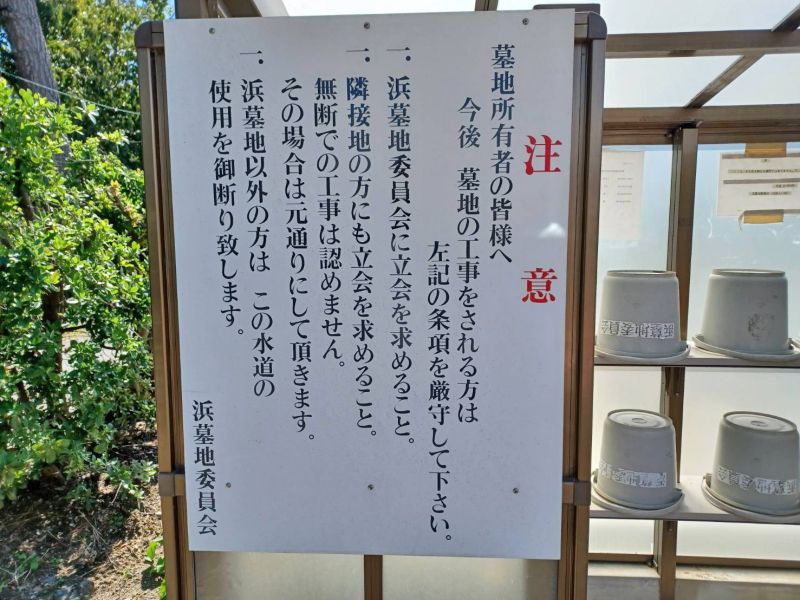 注意
墓地所有者の皆様へ
今後　墓地の工事をされる方は
左記の条項を厳守して下さい。
一. 浜墓地委員会に立会を求めること。
一. 隣接地の方にも立会を求めること。
無断での工事は認めません。
その場合は元通りにして頂きます。
一. 浜墓地以外の方は　この水道の
使用を御断り致します。
浜墓地委員会
浜墓地委員会
浜墓地委員会